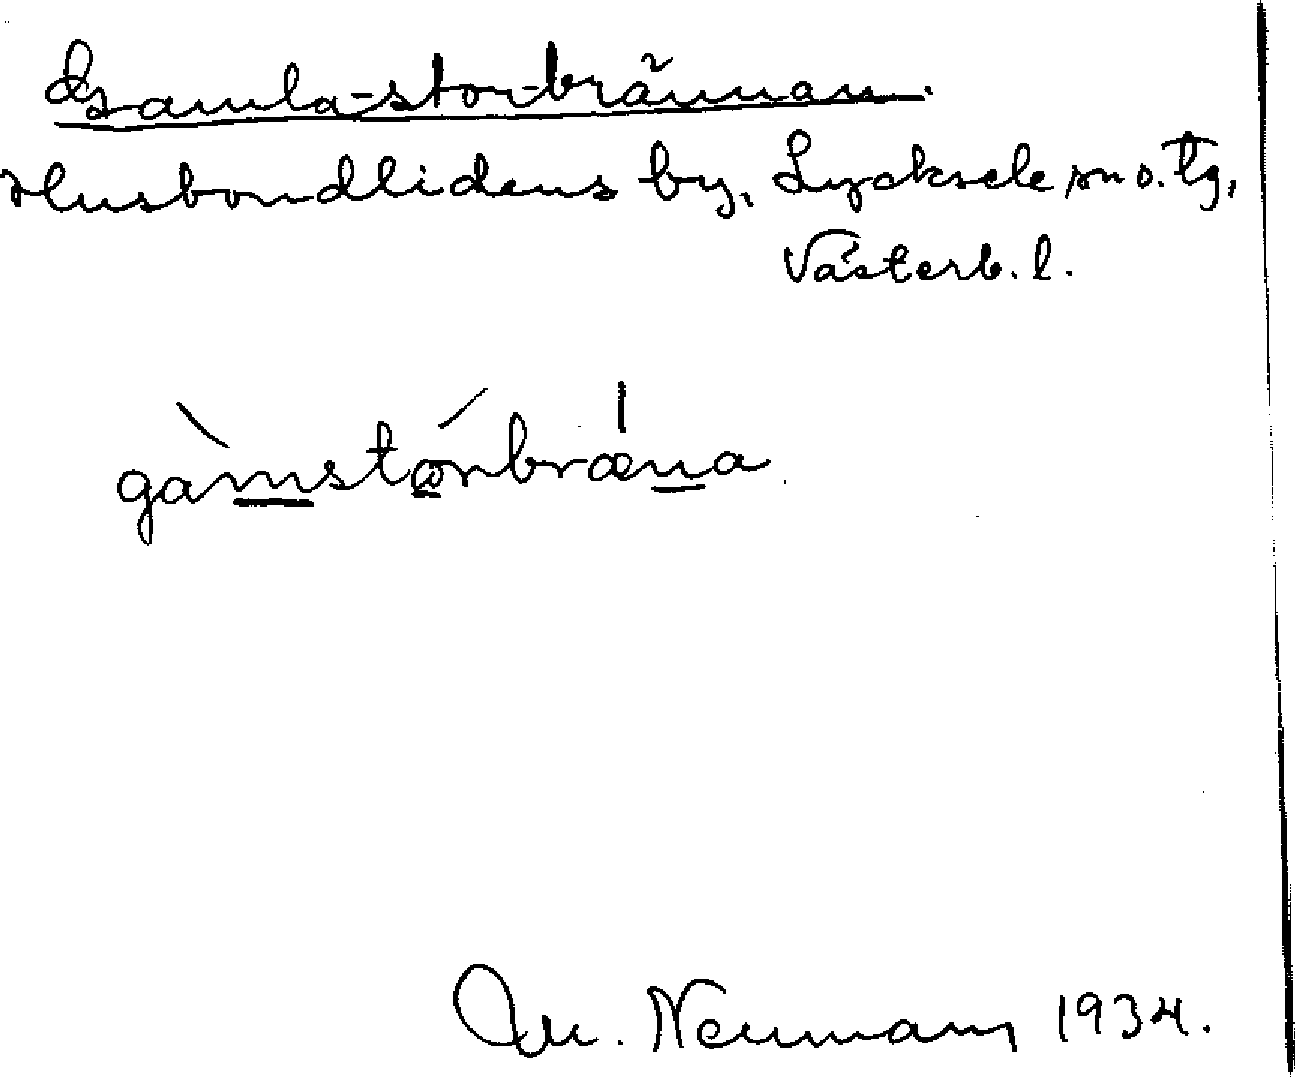 Gamla-stor-brännan.
Husbondlidens by, Lycksele sn o. tg,
Västerb. l.
gàmstǻrbræna
M. Neumann 1934.